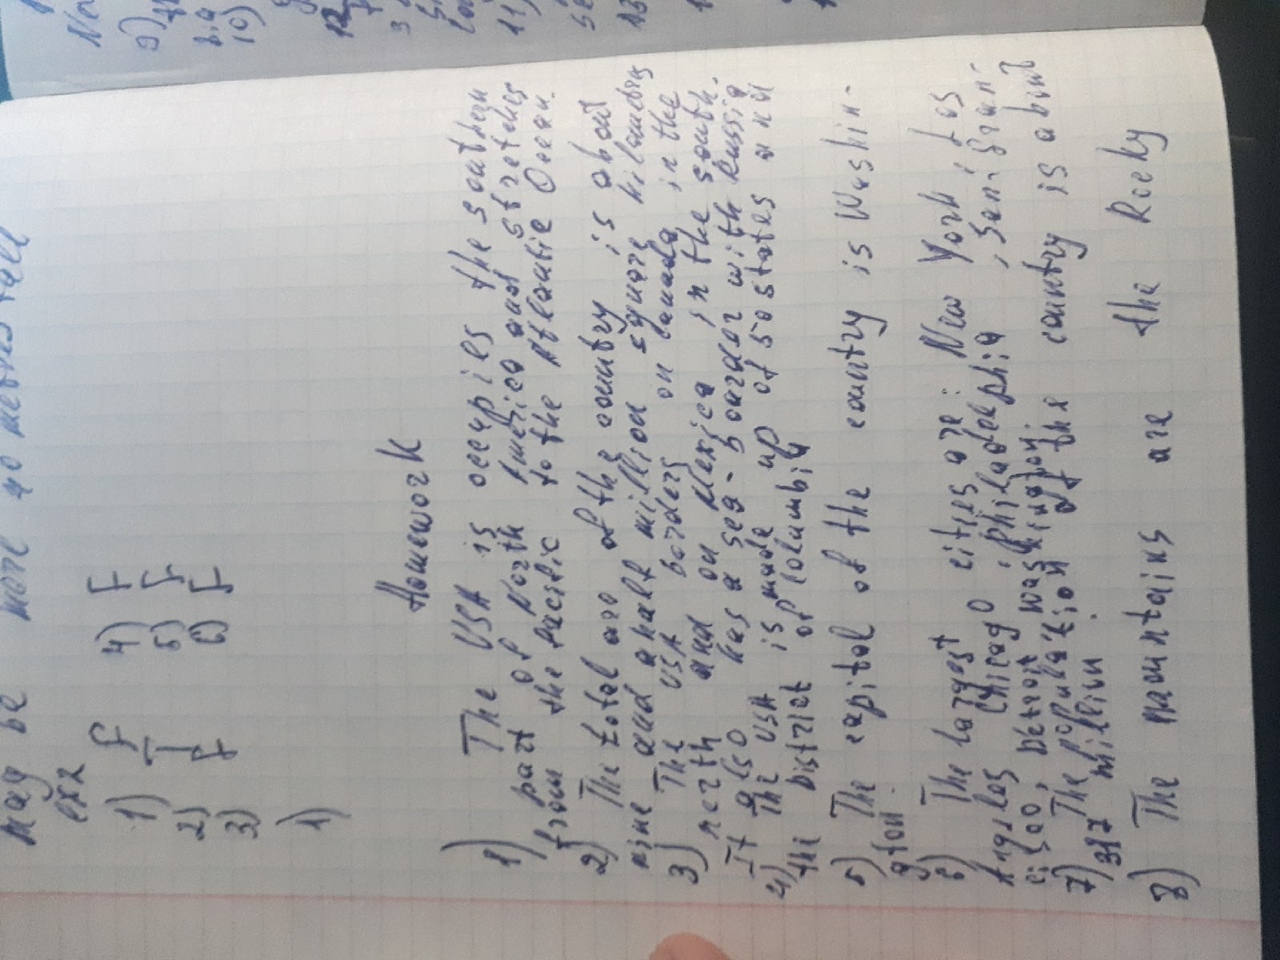 may be more 40 metres tall
ex2
1) F 4) F
2) T 5) F
3) F 6) F
1)
Homework
1) The USA is occupies the southern
part of North America and stretches
from the Pacific to the Atlantic Ocean.
2) The total are of the country is about
nine and half million square kilometres
3) The USA borders on Canada in the
north and on Mexico in the south.
It also has a sea-border with Russia
4) The USA is made up of 50 states and
the District of Columbia
5) The capital of the country is Washin-
gton.
6) The largest cities are: New York, Los
Angeles, Chicago, Philadelphia, San-Fran-
cisco, Detroit Washington.
7) The population of the country is about
327 million.
8) The mountains are the Rocky